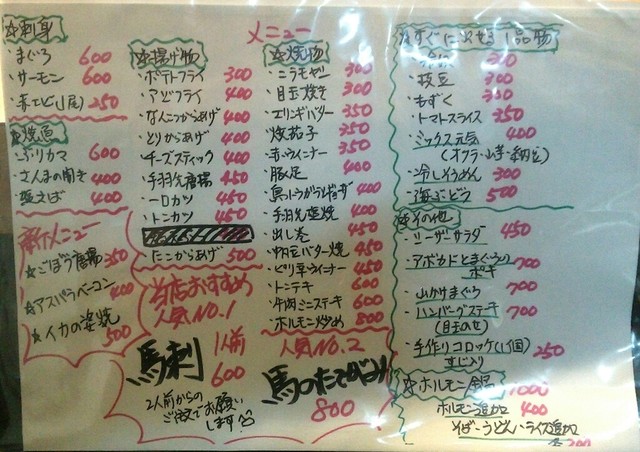 メニュー
☆刺身
・まぐろ 600
・サーモン 600
・赤エビ(1尾) 250
☆焼魚
・ぶりカマ 600
・さんまの開き 400
・塩さば 400
新メニュー
☆ごぼう唐揚 350
☆アスパラベーコン 400
☆イカの姿焼 500
☆揚げ物
・ポテトフライ 300
・アジフライ 400
・なんこつからあげ 400
・とりからあげ 400
・チーズスティック 400
・手羽先唐揚 450
・一口カツ 450
・トンカツ 450
・たこからあげ 500
☆焼物
・ニラモヤシ 300
・目玉焼き 300
・エリンギバター 350
・焼茄子 350
・赤ウインナー 350
・豚足 400
・手羽先塩焼 400
・出し巻 450
・納豆バター焼 450
・ピリ辛ウインナー 450
・トンテキ 600
・牛肉ミニステーキ 600
・ホルモン炒め 800
当店おすすめ
人気NO.1
馬刺 1人前 600
2人前からの
ご注文でお願い
します
人気NO.2
800
☆すぐに出せる1品物
300
・枝豆 300
・もずく 350
・トマトスライス 350
・ミックス元気 400
(オクラ・山芋・納豆)
・冷しそうめん 300
・海ぶどう 500
☆その他
・シーザーサラダ 450
・アボカドとまぐろの
ポキ 700
・山かけまぐろ 700
・ハンバーグステーキ 700
(目玉のせ)
・手作りコロッケ(1個) 250
すじ入り
☆ホルモン鍋 1000
ホルモン追加 400
そば・うどん・ライス追加
各200